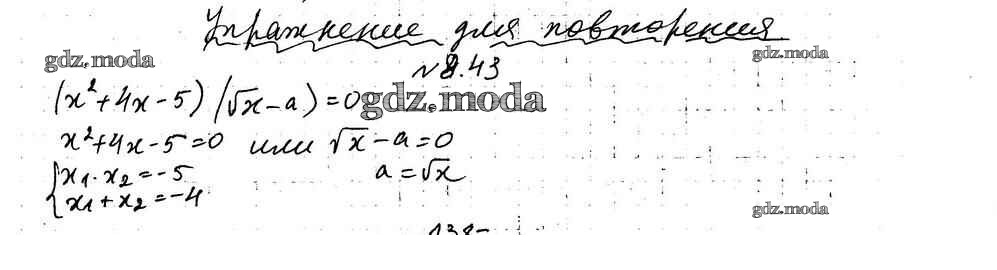 Упражнение для повторения
gdz.moda
gdz.moda
№8.43
(x²+4x-5)(√x-a)=0
gdz.moda
x²+4x-5=0 или √x-a=0
{x₁·x₂=-5
x₁+x₂=-4
a=√x
gdz.moda